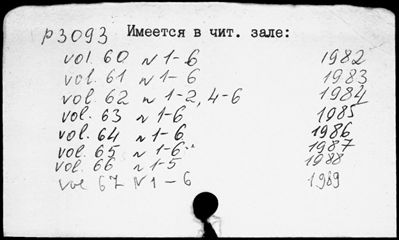 р3093 Имеется в чит. зале:
vol. 60 N 1-6 1982
vol. 61 N 1-6 1983
vol. 62 N 1-2, 4-6 1984
vol. 63 N 1-6 1985
vol. 64 N 1-6 1986
vol. 65 N 1-6 1987
vol. 66 N 1-5 1988
vol 67 N 1-6 1989